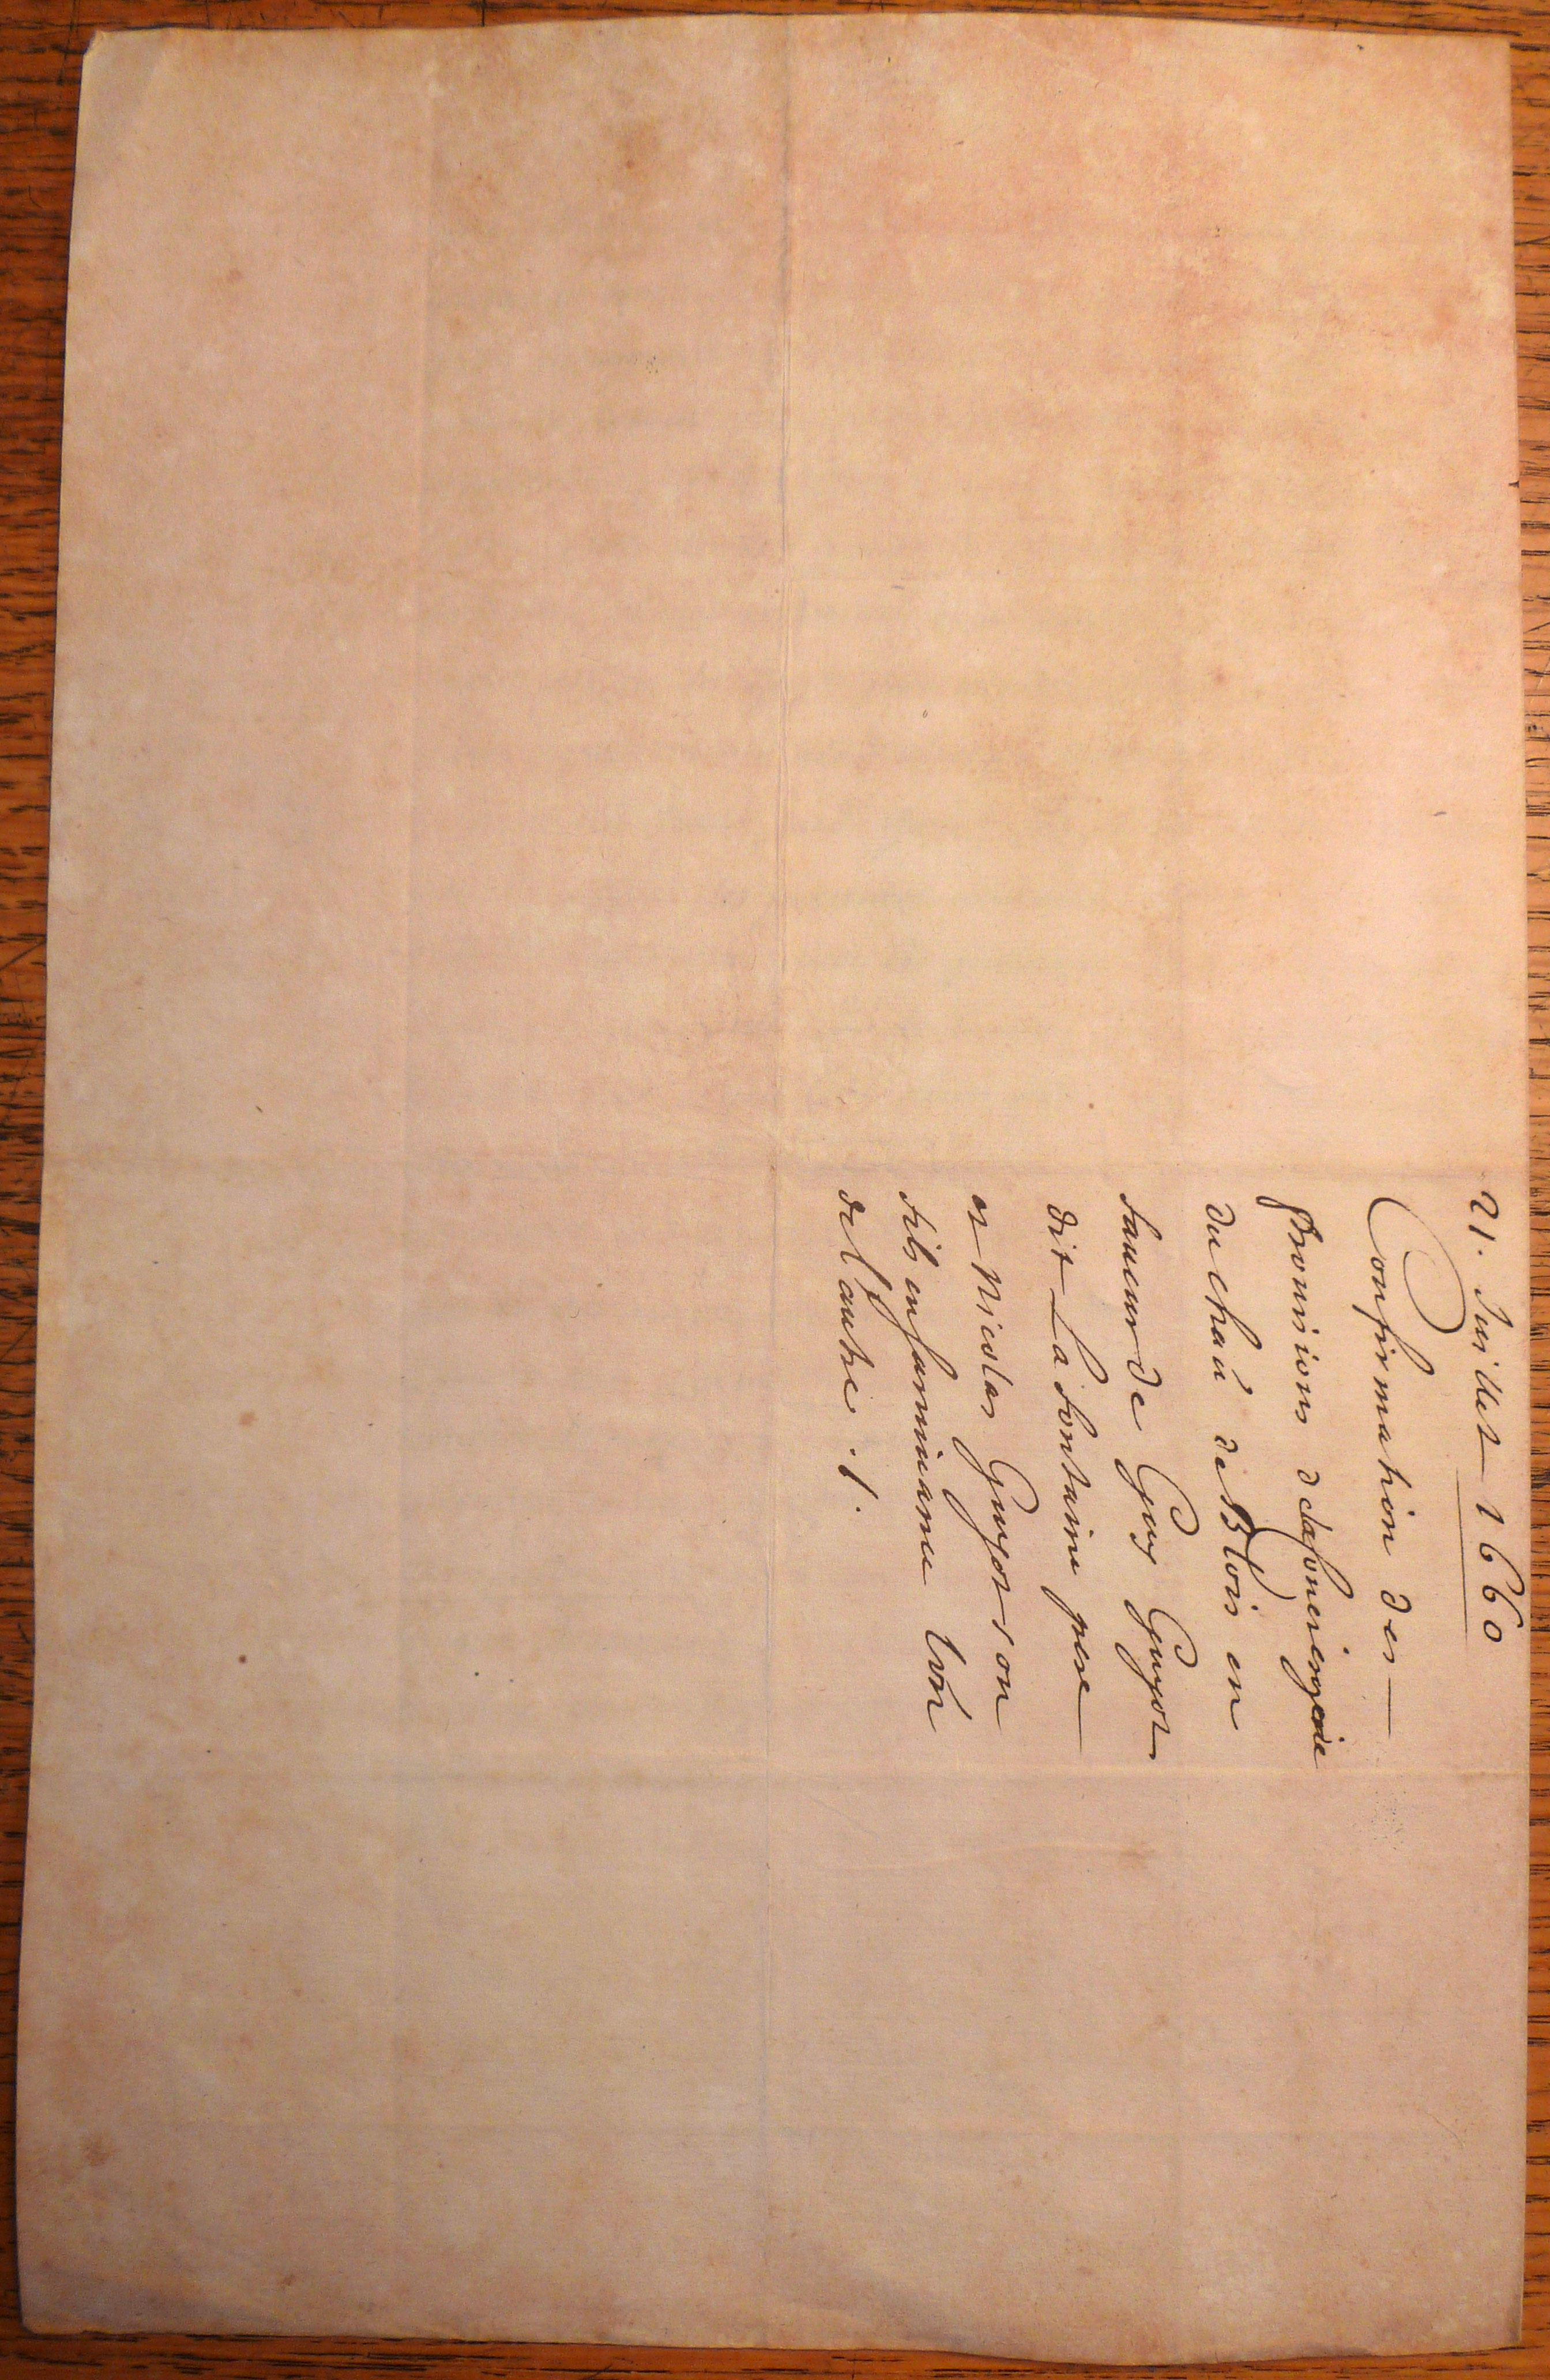 21. Juillet 1660
Confirmation des
prouisions de
du chaū de Blois en
faueur de Guy Guyot
dit La fontaine pere
et Nicolas Guyot son
fils en Lon
de l'autre ./.